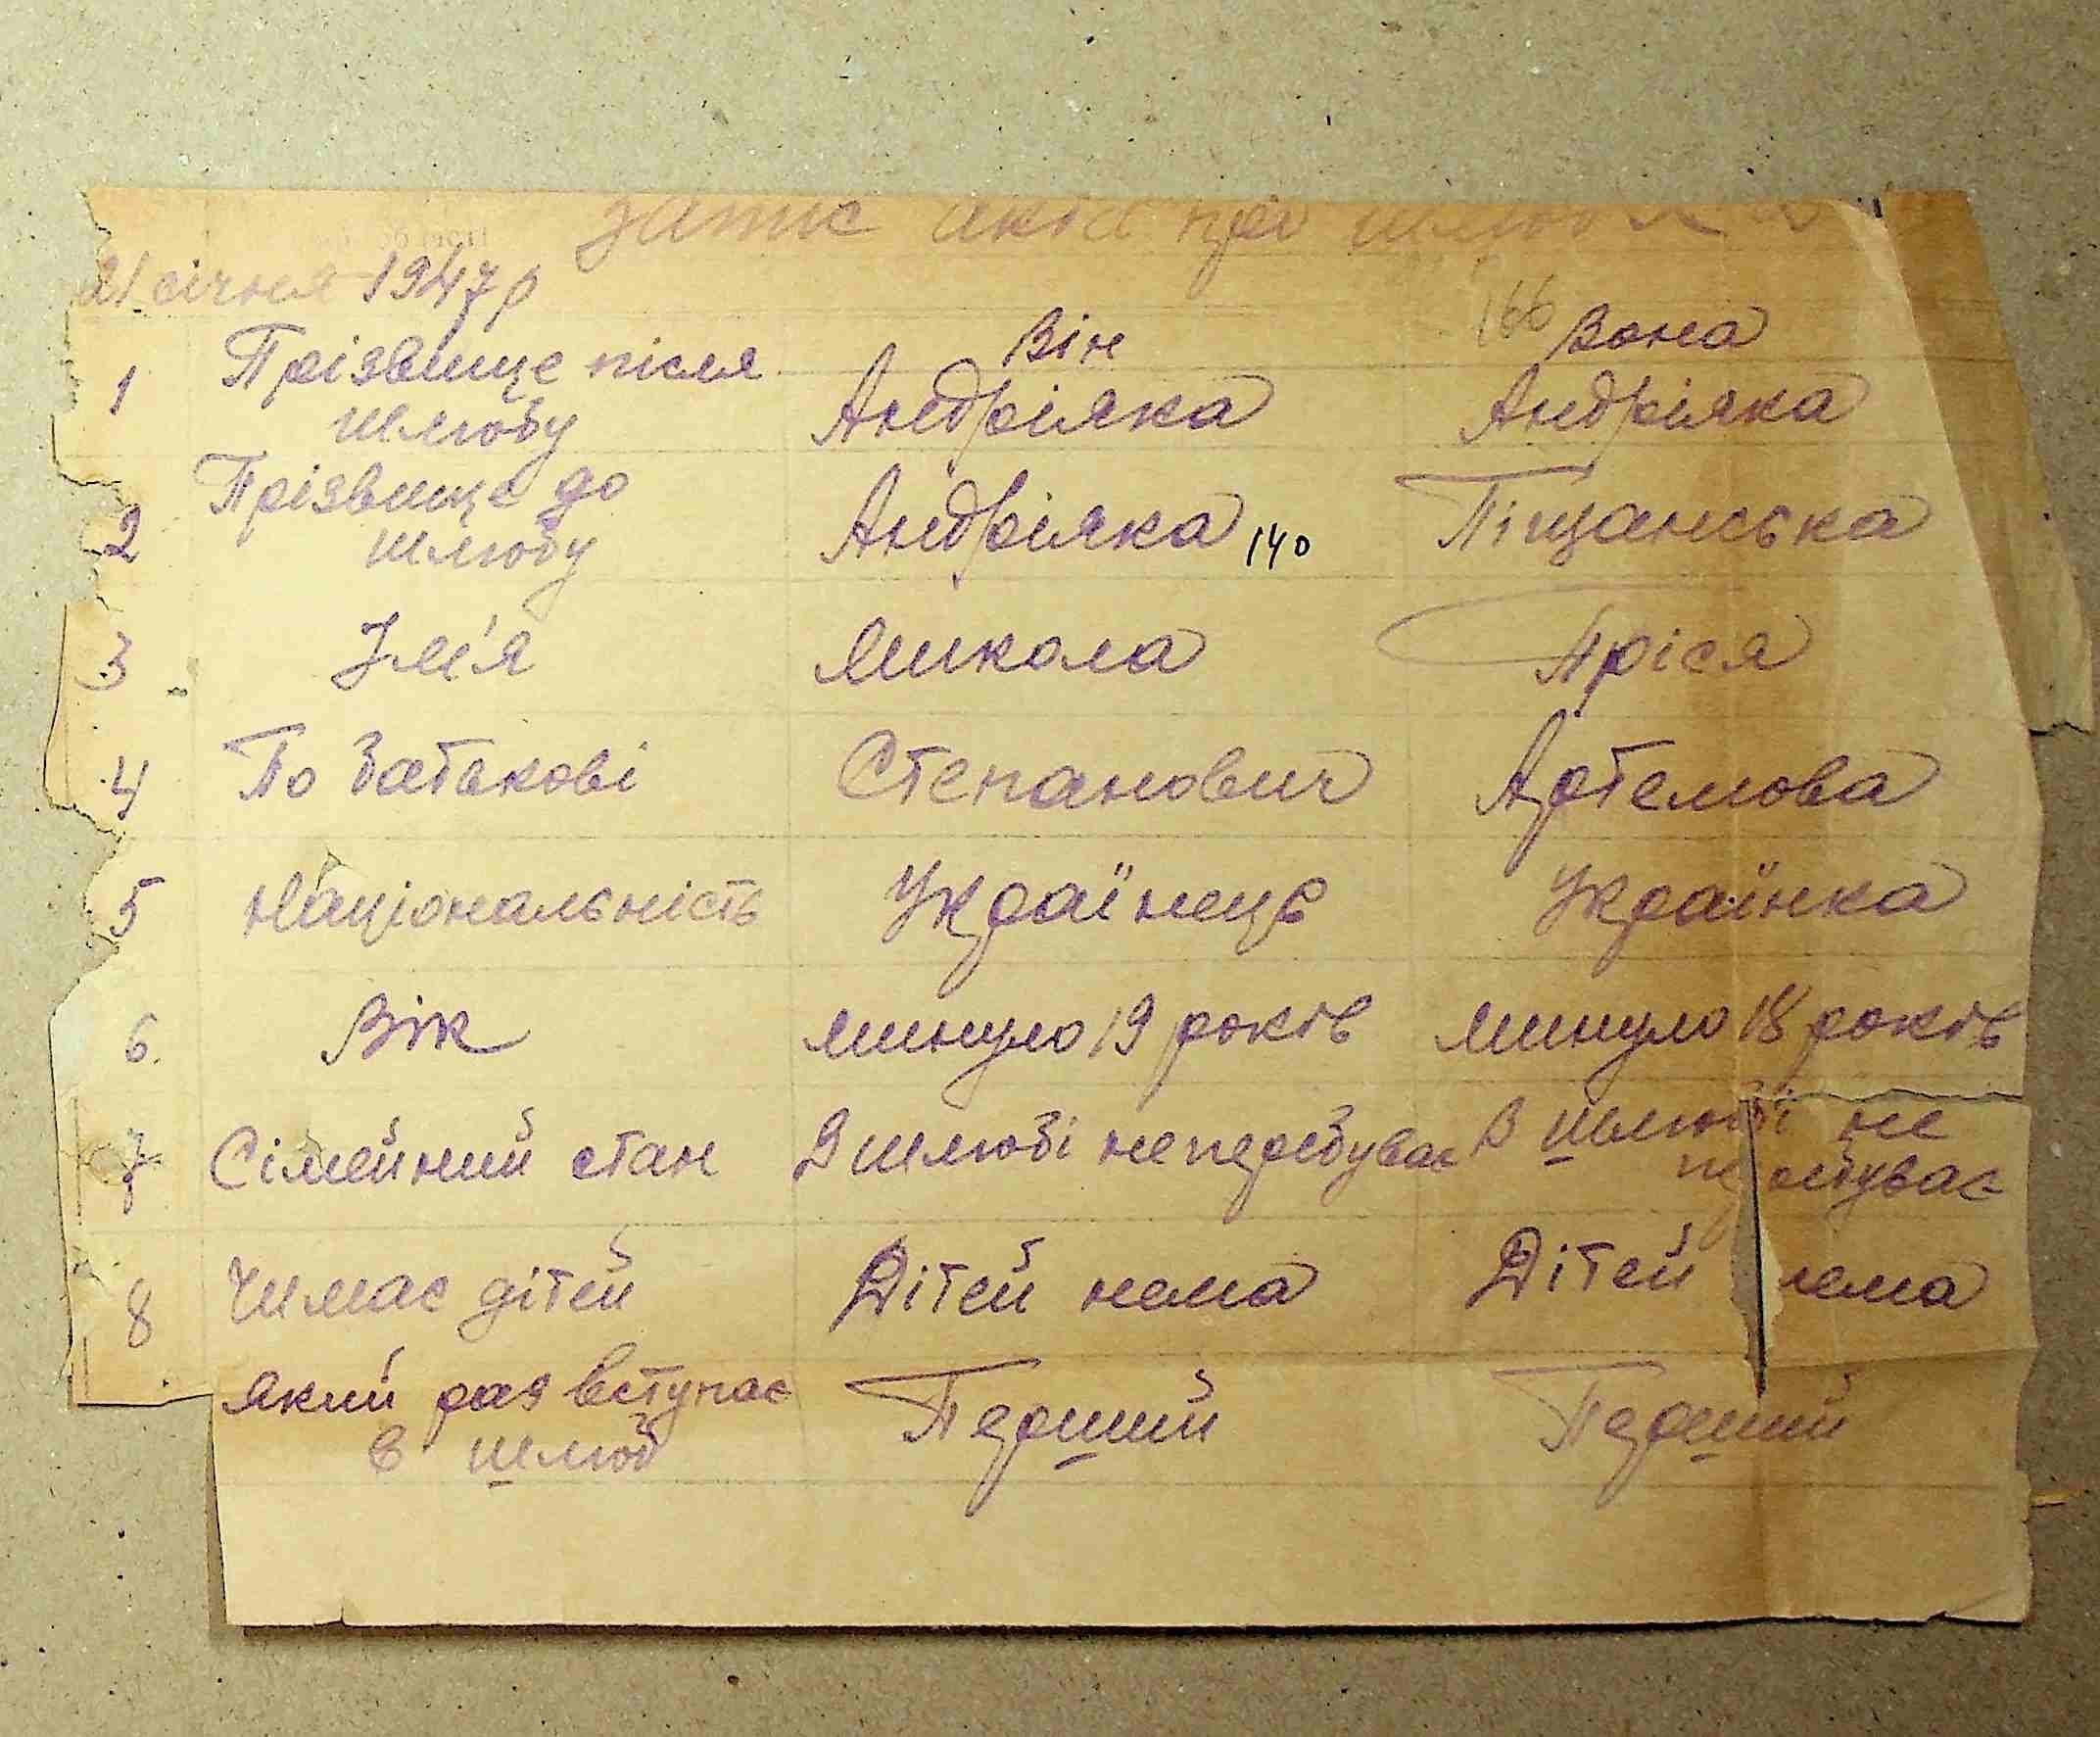 запис акта про шлюб №
21 січня 1947р
166
Він Вона
1 Прізвище після шлюбу Андріяка Андріяка
2 Прізвище до шлюбу Андріяка 140 Піщанська
3 Імя Микола Пріся
4 По батькові Степанович Артемова
5 Національність Українець Українка
6. Вік минуло 19 років минуло 18 років
7 Сімейний стан В шлюбі не перебуває В шлюбі не перебуває
8 Чи має дітей Дітей нема Дітей нема
який раз вступає в шлюб Перший Перший